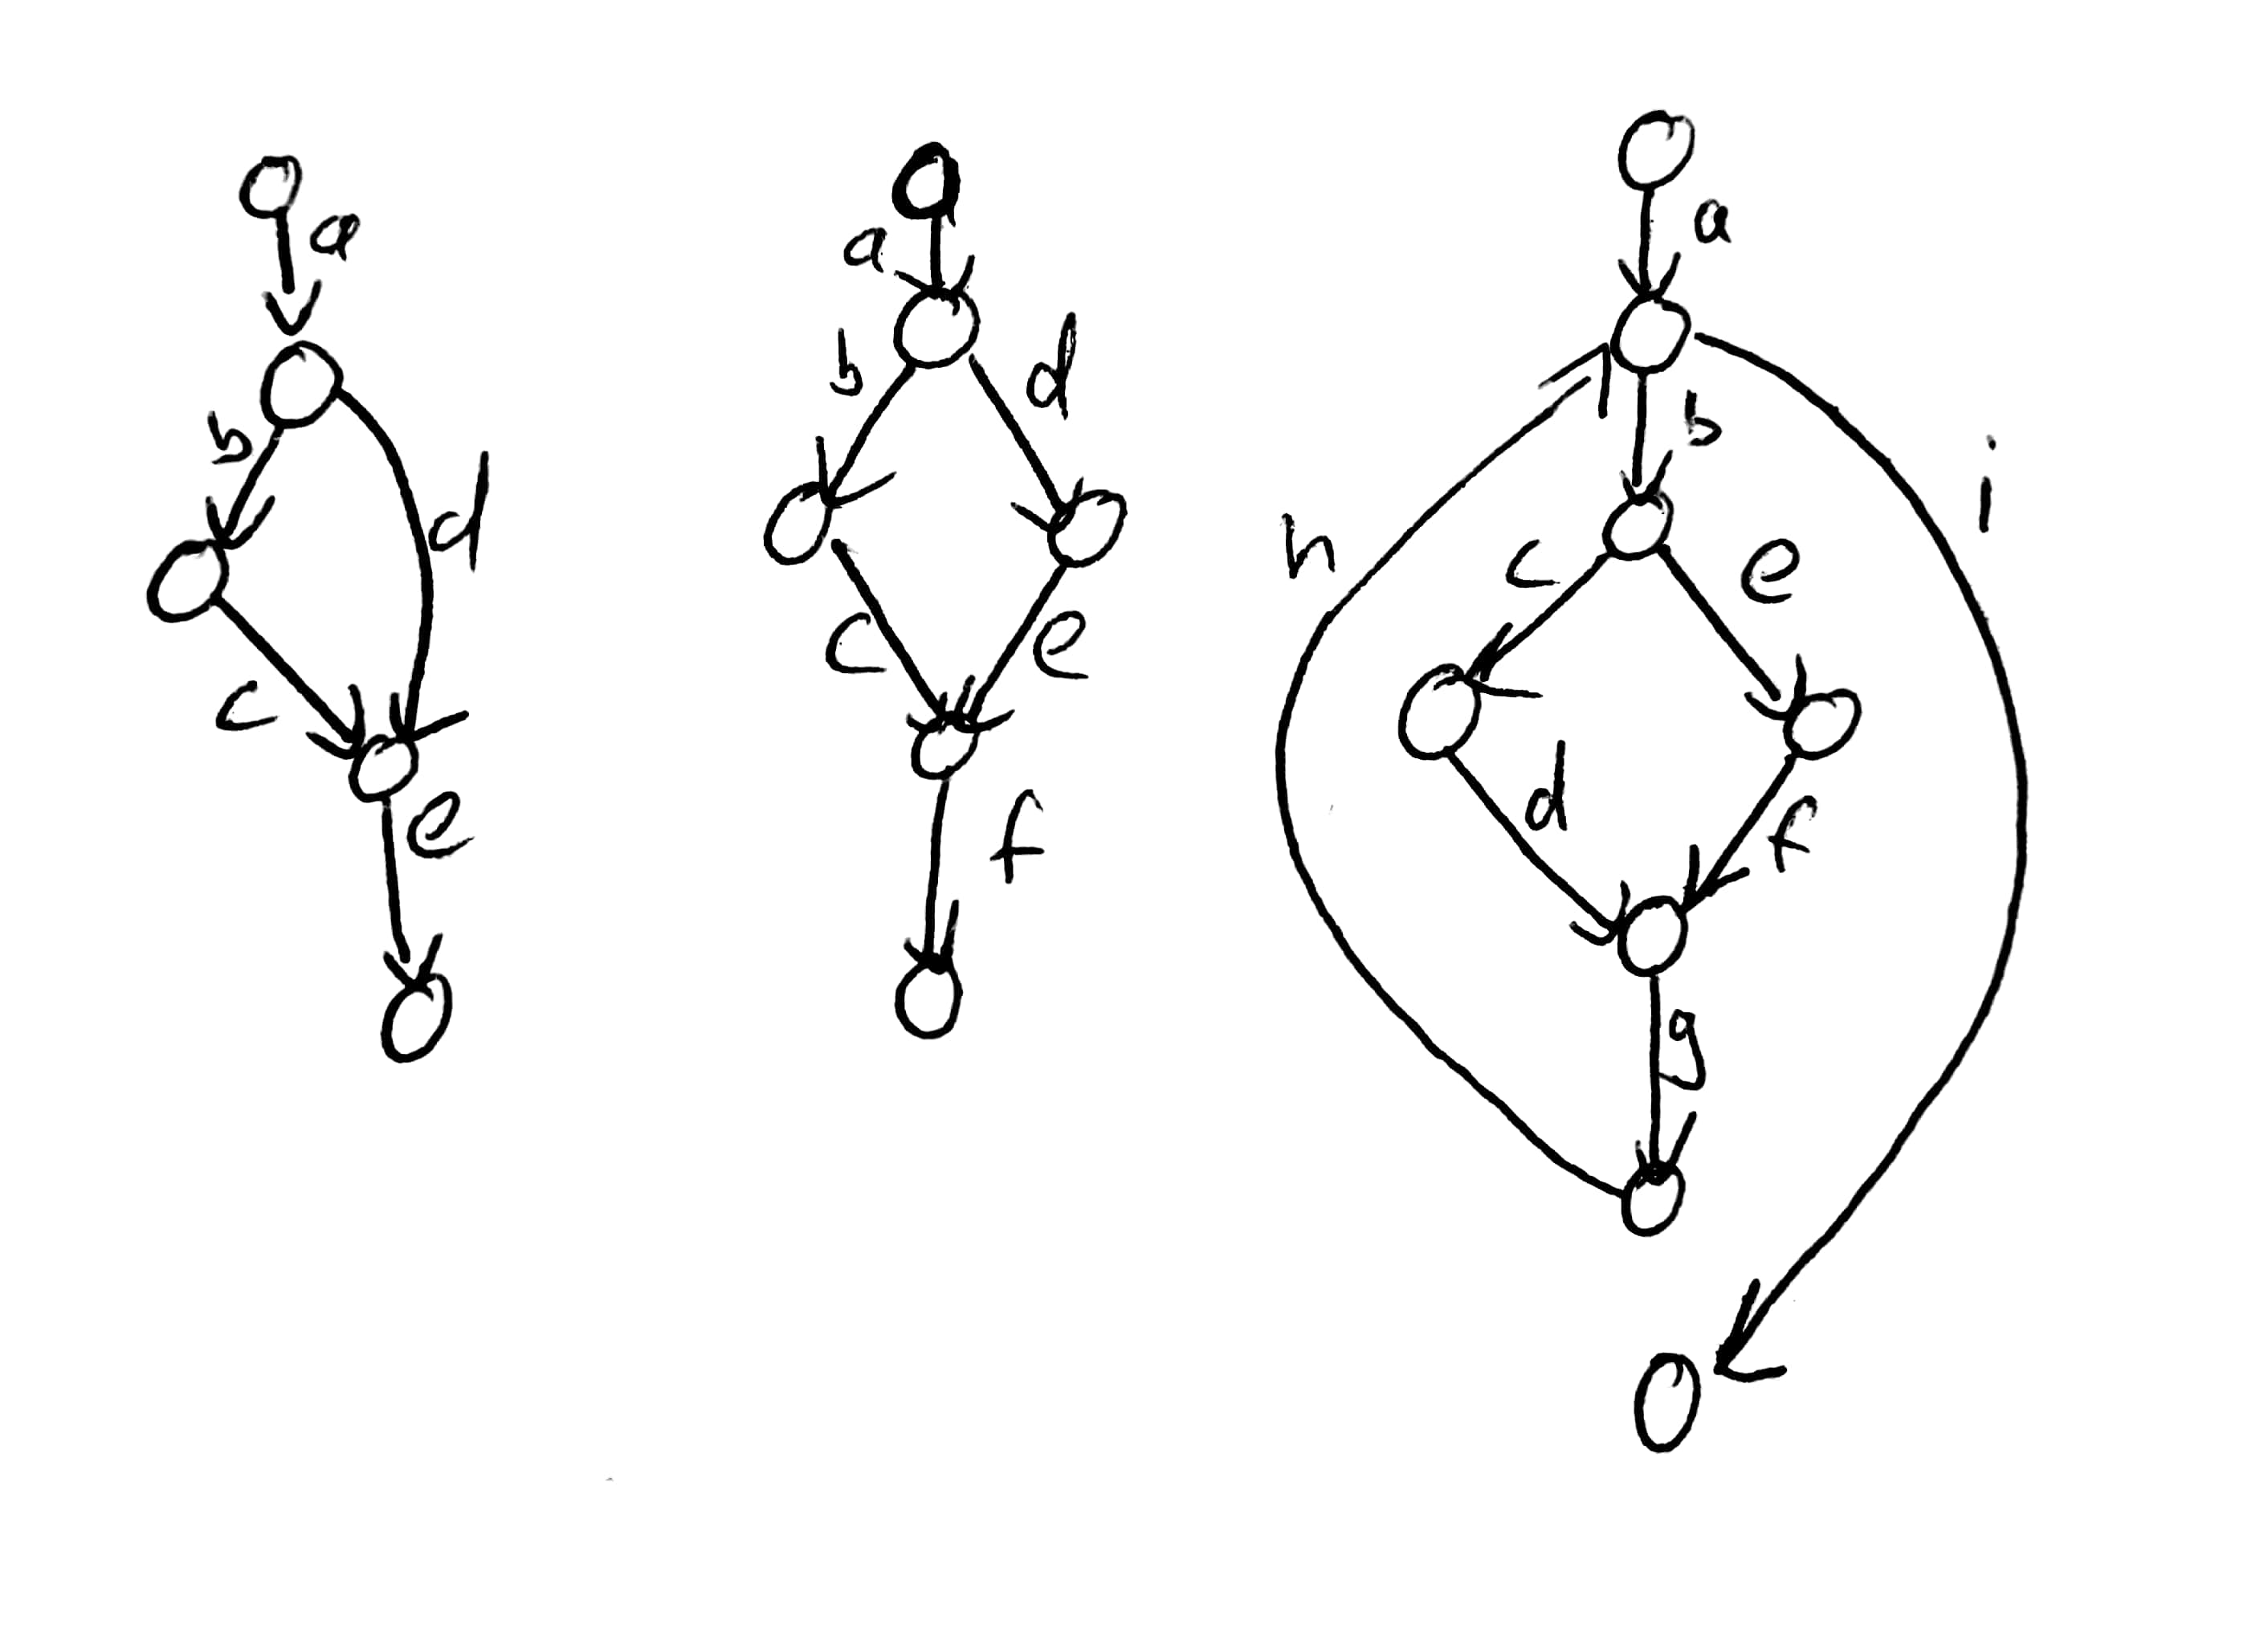 a
b
d
c
e
a
b
d
c
e
f
a
b
i
h
c
e
d
f
g